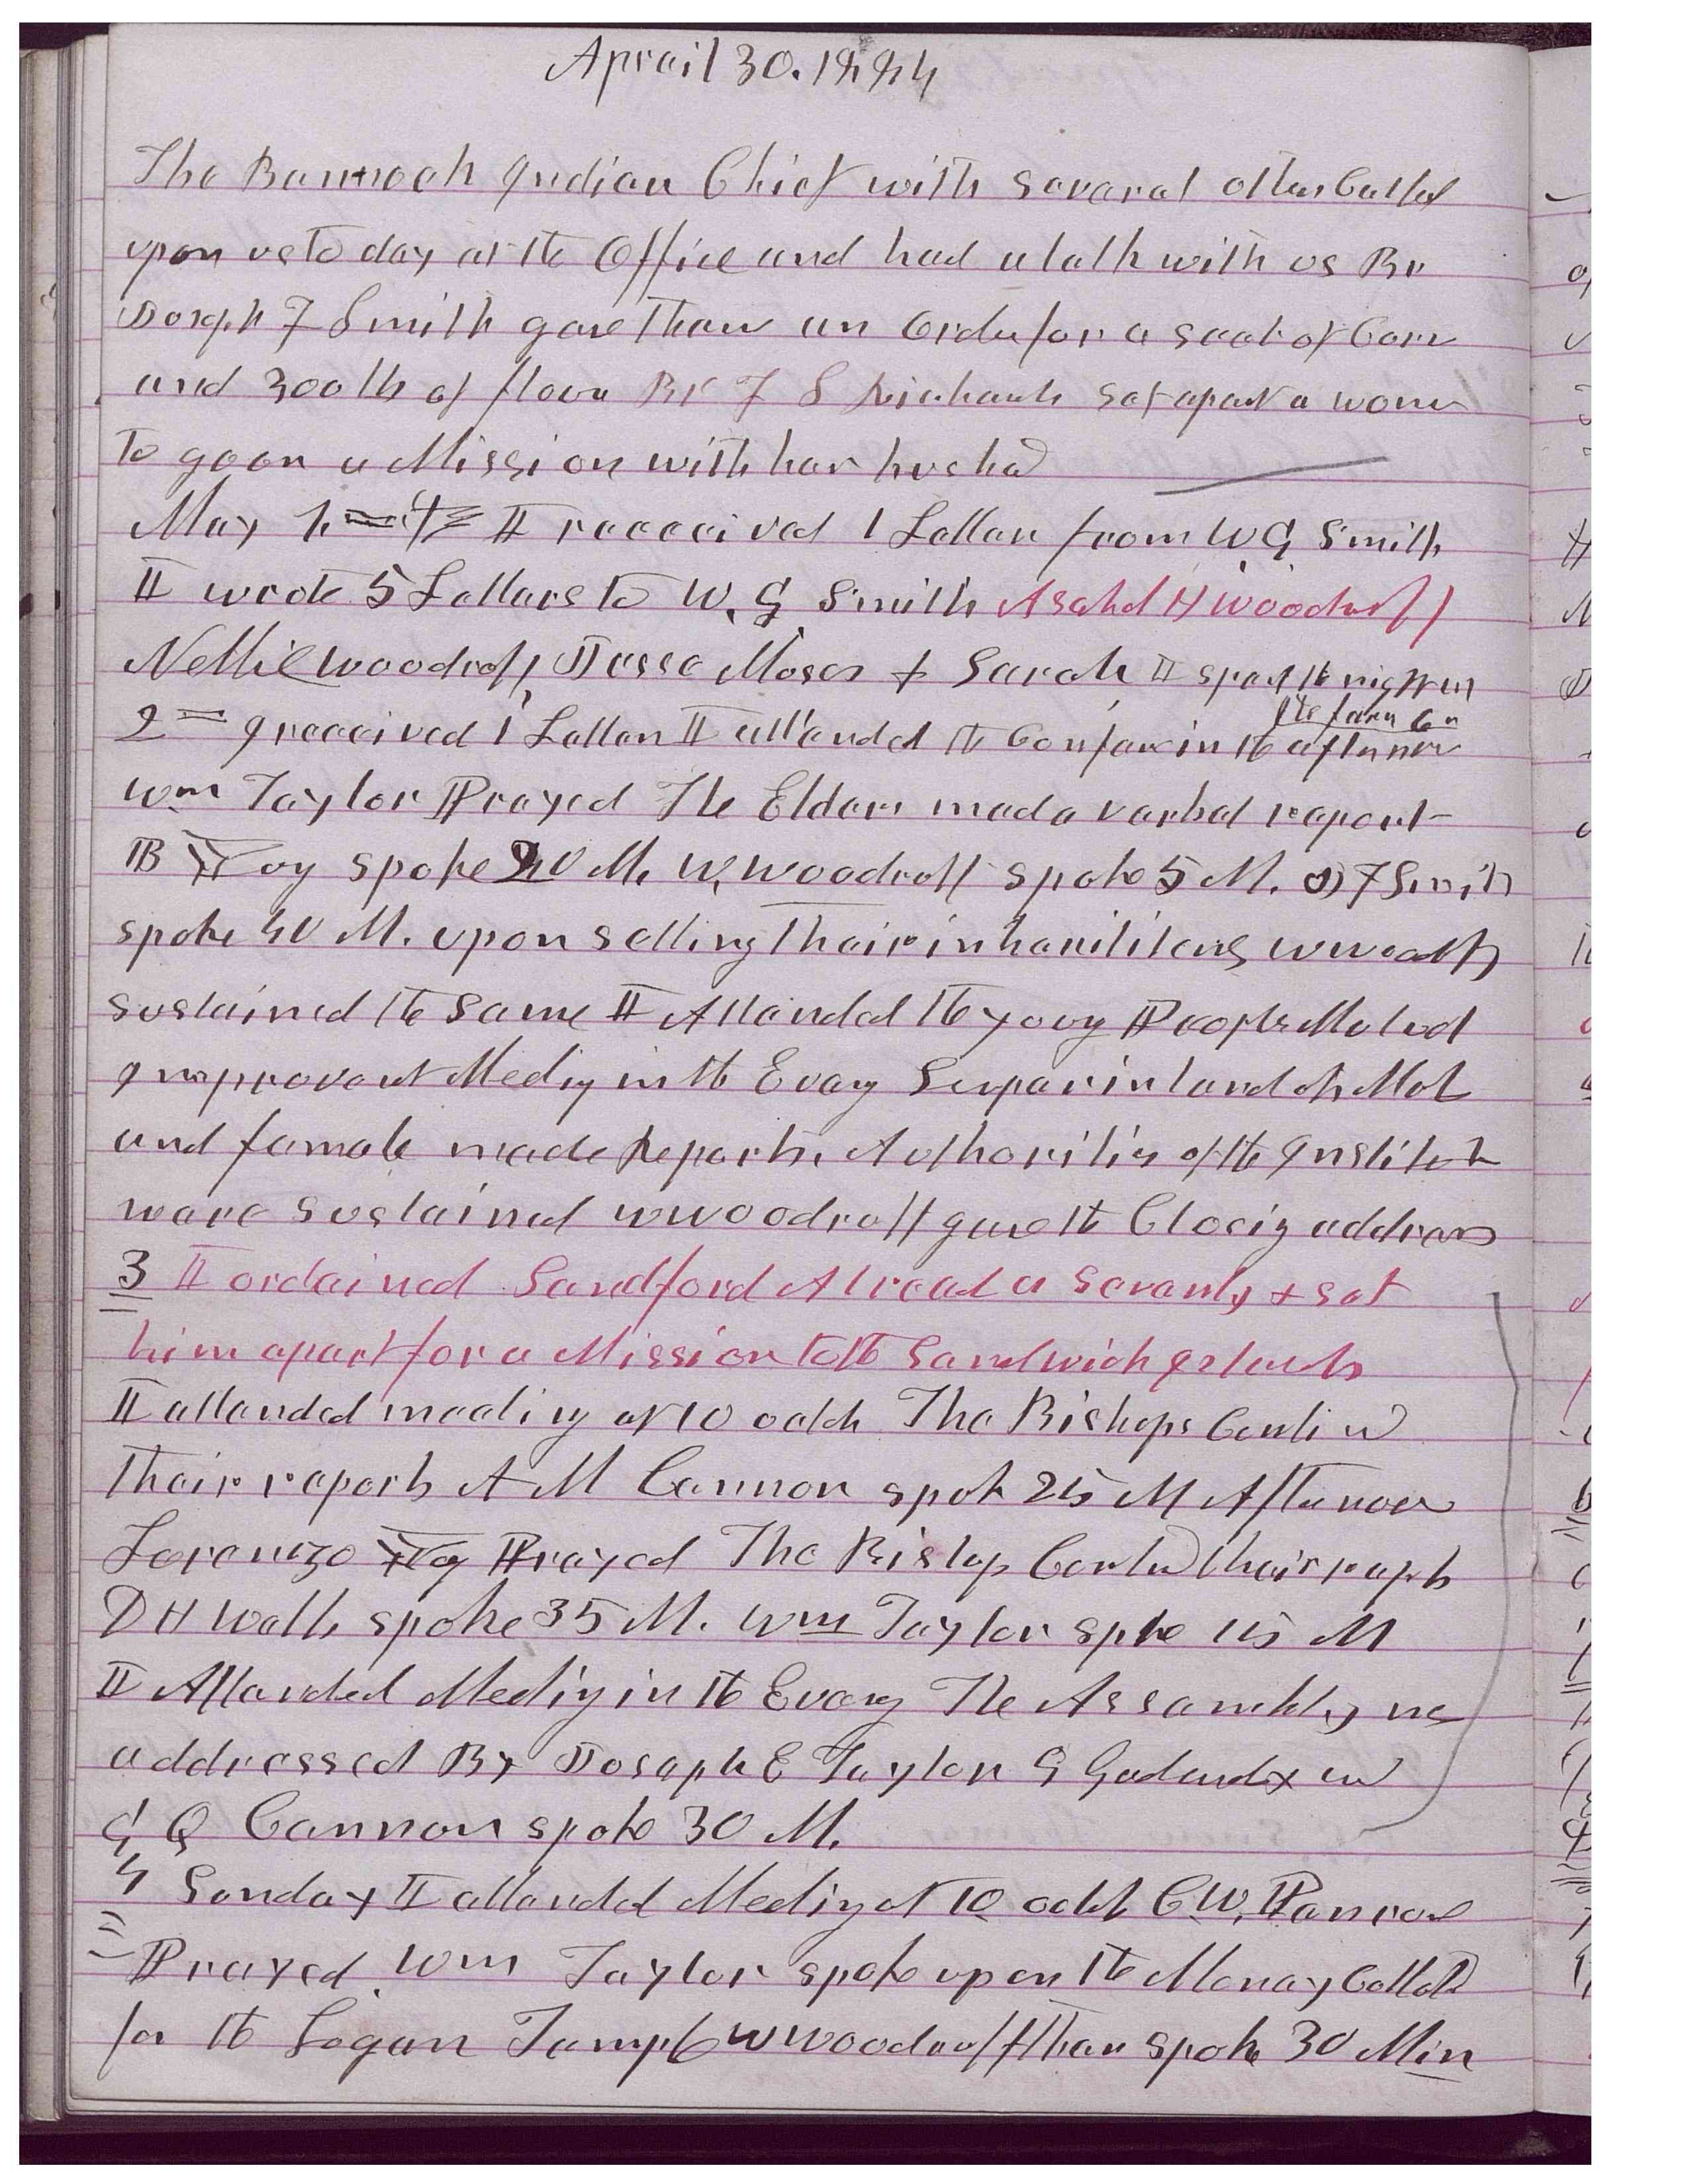 Aprail 30. 1884
The Bannock Indian Chief with several others Called
upon us to day at the Office and had a talk with us Br
Joseph F Smith gave them an Order for a sack of Corn
and 300 lb of flour Br F S Richards set apart a woman
to go on a Mission with her husband
May 1. I receeived 1 Letter from W G Smith
I wrote 5 Letters to W. G. Smith Asahel H Woodruff
Nellie Woodruff, Jesse Moses & Sarah I spent the night in
the farm
2 = I receeived 1 Letter I attended the Confere in the afternoon
Wm Taylor Prayed The Elders made verbal report
B Young spoke 20 M. W. Woodruff spoke 5 M. J F Smith
spoke 40 M. upon selling their inheritances W Woodruff
sustained the same I Attended the young People Mutual
Improvement Meeting in the Evening Superintendents Male
and female made Reports. Authorities of the Institution
were sustained W Woodruff gave the Closing address
3 I ordained Sandford Allred a Seventy & set
him apart for a Mission to the Sandwich Islands
I attended meeting at 10 oclok The Bishops Continued
their reports A M Cannon spok 25 M Afternoon
Lorenzo Young Prayed The Bishop Continued their reports
D H Wells spoke 35 M. Wm Taylor spoke 15 M
I Attended Meeting in the Evening The Assembly was
addressed By Joseph E Taylor G Goddard and
G Q Cannon spoke 30 M.
4 Sunday I attended Meeting at 10 oclok C W. Penrose
Prayed. Wm Taylor spoke upon the Money Collected
for the Logan Temple W Woodruff then spoke 30 Min